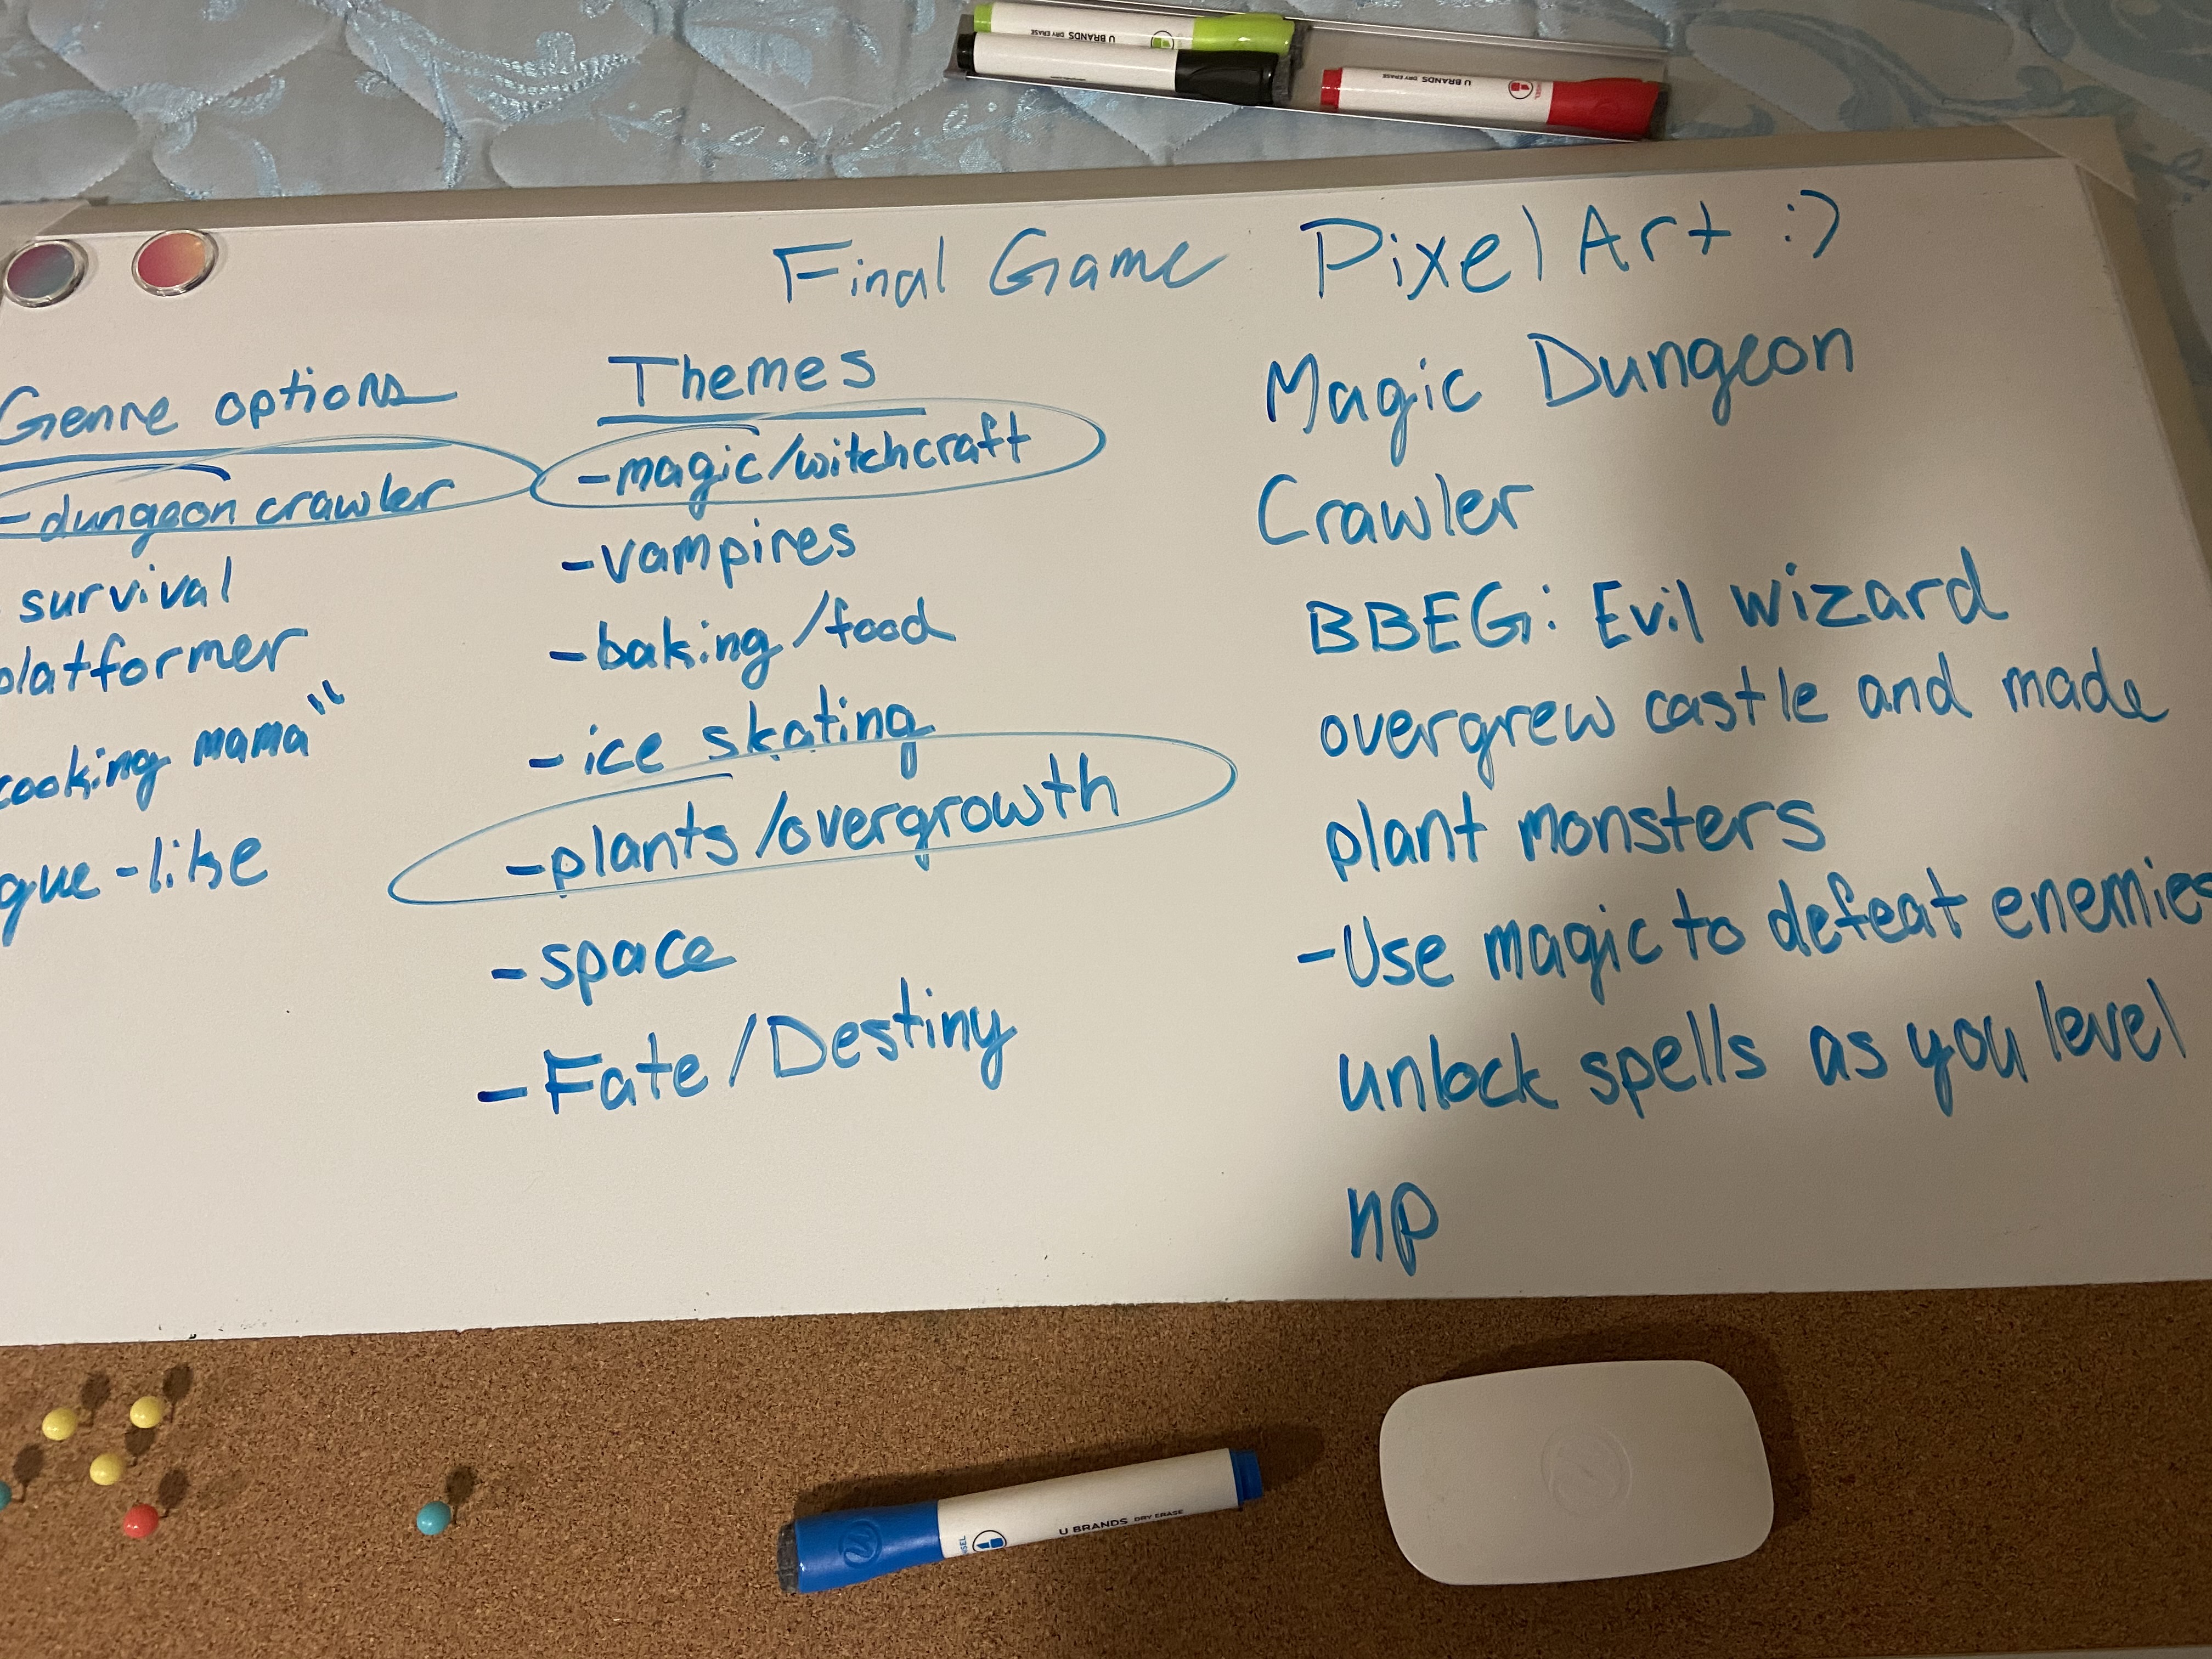 Final Game
Genre options
- dungeon crawler
survival
platformer
cooking mama"
gue-like
Themes
- magic/witchcraft
- vampires
- baking/food
- ice skating
- plants/overgrowth
- space
- Fate/Destiny
Pixel Art :)
Magic Dungeon
Crawler
BBEG: Evil wizard
overgrew castle and made
plant monsters
- Use magic to defeat enemies
unlock spells as you level
up
U BRANDS DRY ERASE
U BRANDS DRY ERASE
U BRANDS DRY ERASE